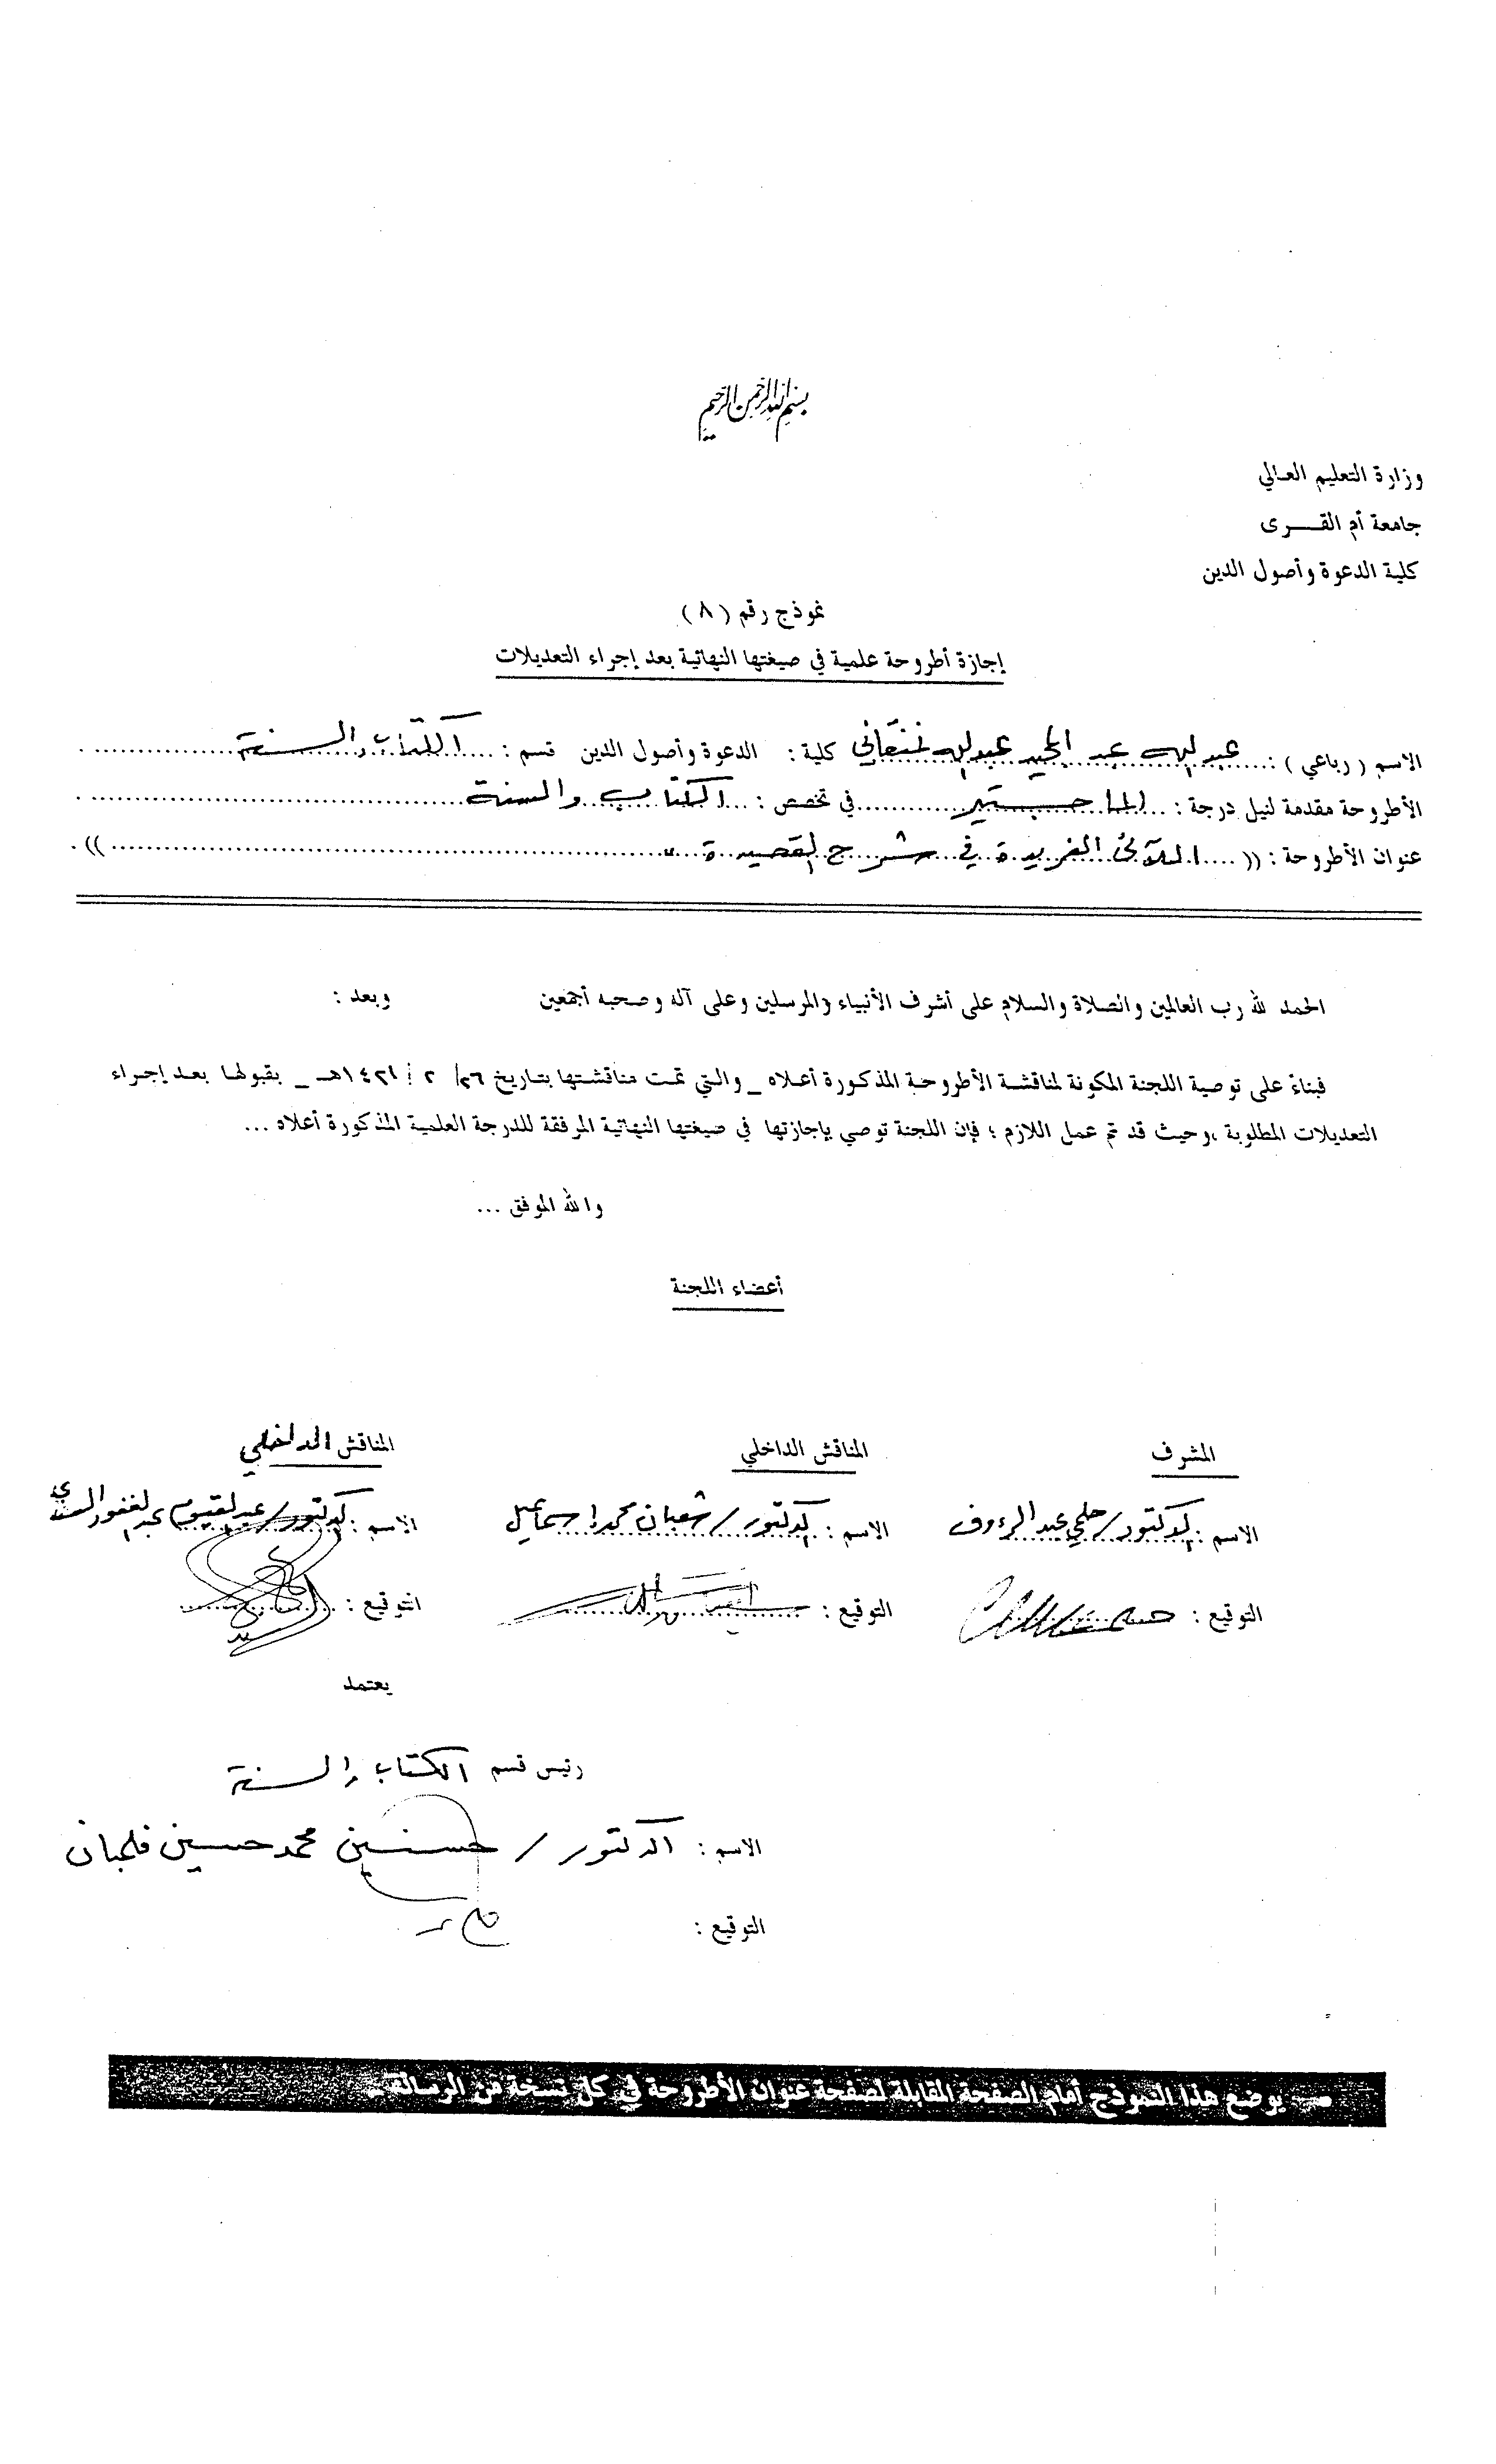 بسم الله الرحمن الرحيم
وزارة التعليم العالي
جامعة أم القــــرى
كلية الدعوة وأصول الدين
نموذج رقم ( ٨ )
إجازة أطروحة علمية في صيغتها النهائية بعد إجراء التعديلات
الاسم ( رباعي ) : عبد الله عبد المجيد عبد الله نمنقاني كلية : الدعوة وأصول الدين قسم : الكتاب والسنة
الأطروحة مقدمة لنيل درجة : الماجستير في تخصص : الكتاب والسنة
عنوان الأطروحة : (( اللآلئ الفريدة في شرح القصيدة )) .
الحمد لله رب العالمين والصلاة والسلام على أشرف الأنبياء والمرسلين وعلى آله وصحبه أجمعين وبعد :
فبناءً على توصية اللجنة المكونة لمناقشة الأطروحة المذكورة أعلاه _ والتي تمت مناقشتها بتاريخ ٢٦/ ٢ / ١٤٢١هـ _ بقبولها بعد إجراء
التعديلات المطلوبة ،وحيث قد تم عمل اللازم ؛ فإن اللجنة توصي بإجازتها في صيغتها النهائية المرفقة للدرجة العلمية المذكورة أعلاه ...
والله الموفق ...
أعضاء اللجنة
المشرف المناقش الداخلي المناقش الداخلي
الاسم : الدكتور/ حلمي عبد الرءوف الاسم : الدكتور/ شعبان محمد إسماعيل الاسم : الدكتور/ عبد القيوم عبد الغفور السندي
التوقيع : التوقيع : التوقيع :
يعتمد
رئيس قسم الكتاب والسنة
الاسم : الدكتور / حسنين محمد حسين فلمبان
التوقيع :
يوضع هذا النموذج أمام الصفحة المقابلة لصفحة عنوان الأطروحة في كل نسخة من الرسالة